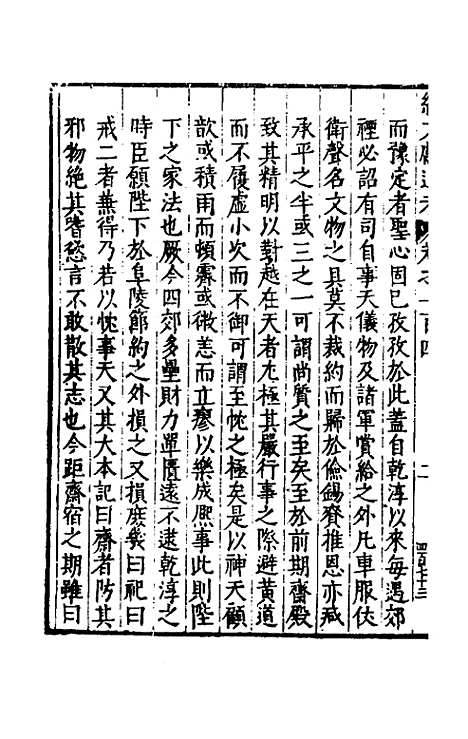 續文獻通考 卷之一百四 二
而豫定者聖心固已孜孜於此蓋自乾淳以來每遇郊
禋必詔有司自事天儀物及諸軍賞給之外凢車服仗
衛聲名文物之具莫不裁約而歸於儉錫賚推恩亦減
承平之半或三之一可謂尚質之至矣至於前期齋殿
致其精明以對越在天者尢極其嚴行事之際避黃道
而不履虛小次而不御可謂至忱之極矣是以神天顧
歆或積雨而頓霽或微恙而立瘳以樂成熈事此則陛
下之家法也厥今四郊多壘財力單匱遠不逮乾淳之
時臣願陛下於阜陵節約之外損之又損庶㡬曰祀曰
戒二者無得乃若以忱事天又其大本記曰齋者防其
邪物絶其嗜慾言不敢散其志也今距齋宿之期雖曰